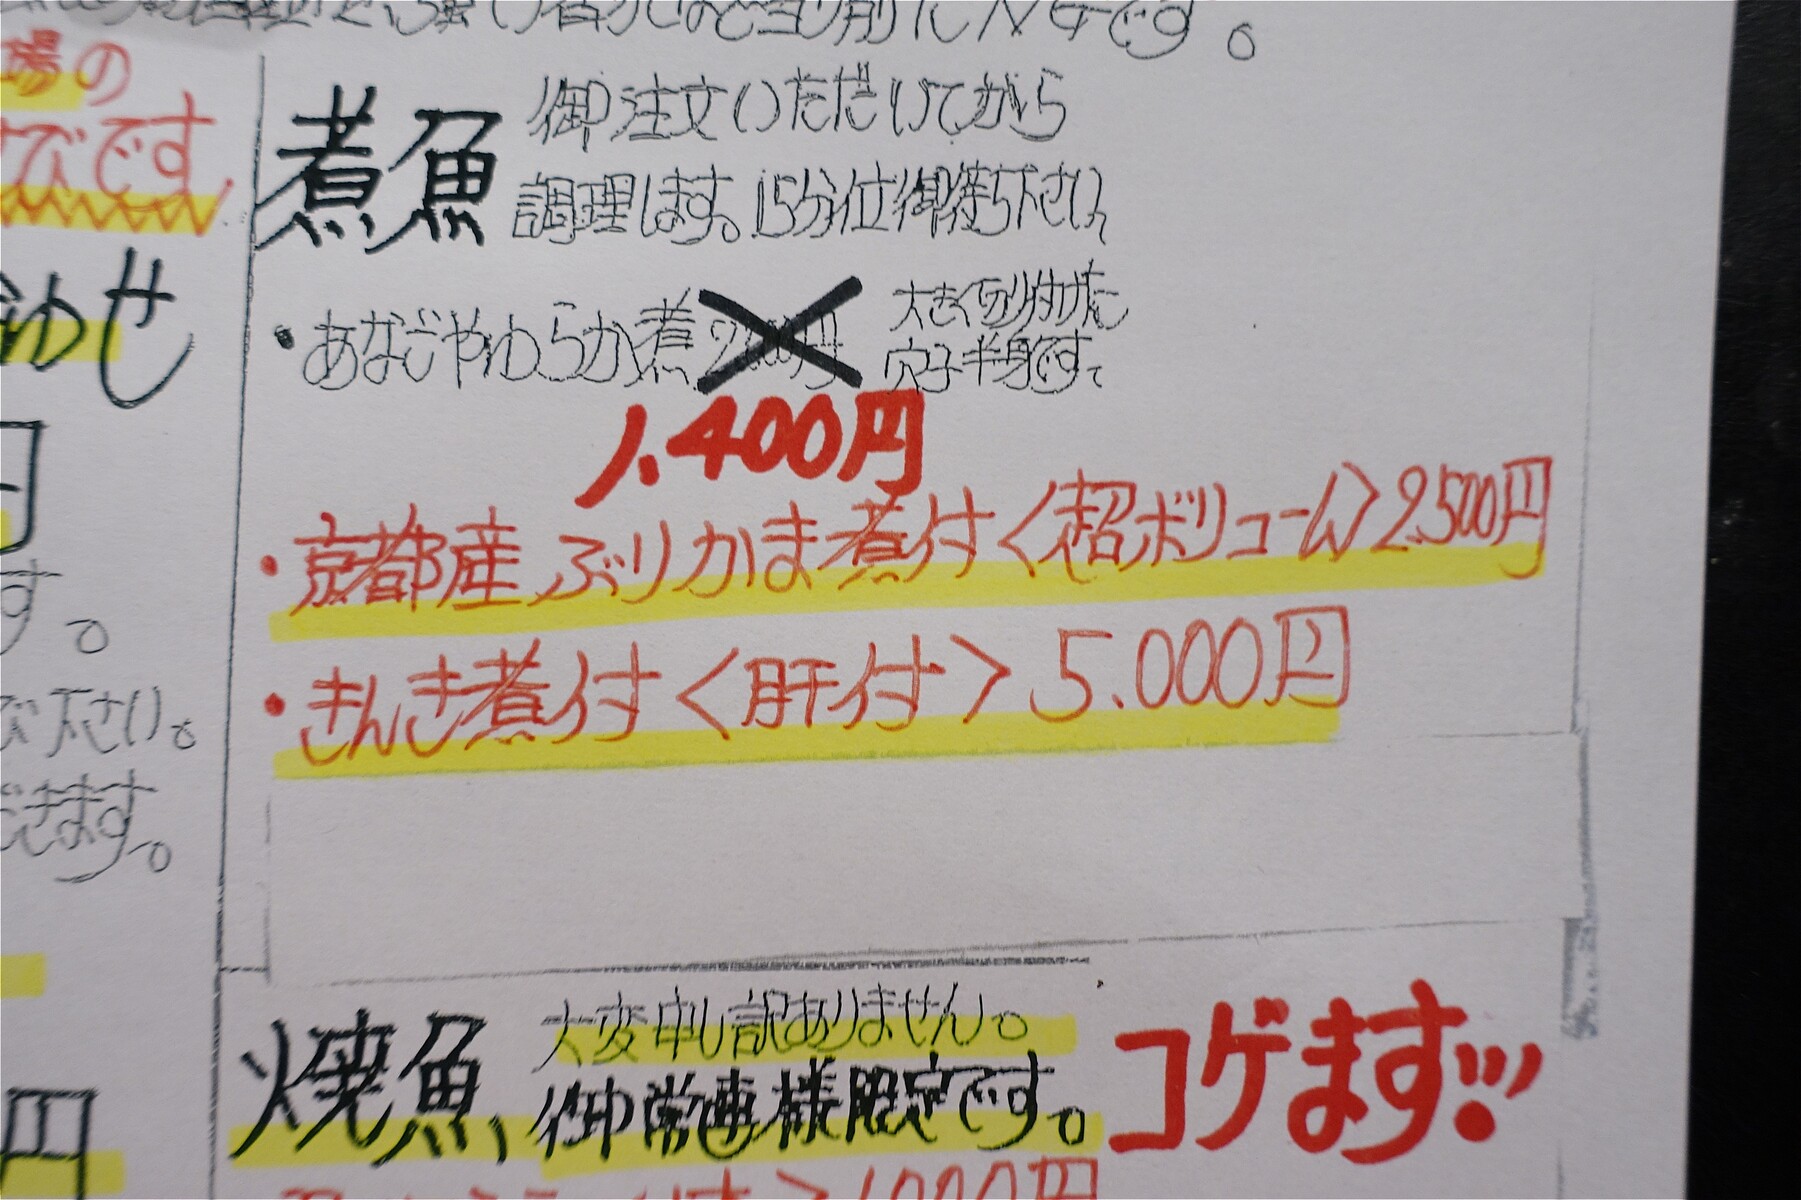 場の
です
わせ
す。
下さい。
できます。
円
煮魚
御注文いただいてから
調理します。15分位御待ち下さい
・あなごやわらか煮
大きく切り付けた
穴子半身です。
1.400円
・京都産ぶりかま煮付<超ボリューム>2.500円
・きんき煮付<肝付>5.000円
焼魚
大変申し訳ありません。
御常連様限定です。
コゲます!!